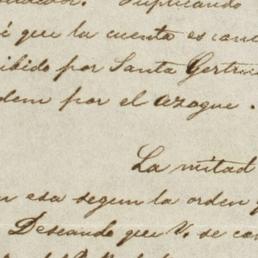 Suplicando
que la cuenta es
por Santa Gertru
por el azogue.
La mitad
en esa segun la orden
Deseando que V. se con